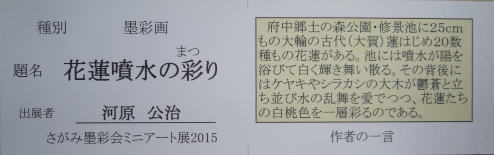 種別 墨彩画
まつ
題名 花蓮噴水の彩り
出展者 河原 公治
さがみ墨彩会ミニアート展2015
府中郷土の森公園・修景池に25cm
もの大輪の古代(大賀)蓮はじめ20数
種もの花蓮がある。池には噴水が陽を
浴びて白く輝き舞い散る。その背後に
はケヤキやシラカシの大木が鬱蒼と立
ち並び水の乱舞を愛でつつ、花蓮たち
の白桃色を一層彩るのである。
作者の一言